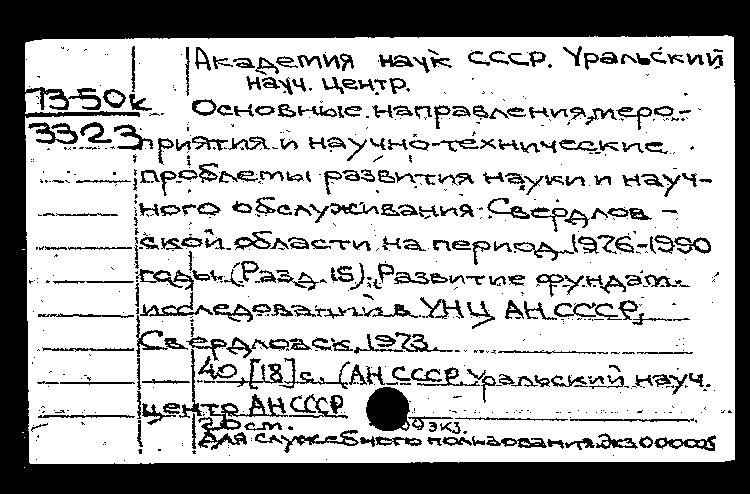 Академия наук СССР. Уральский
науч. центр.
73-50к
3323
Основные направления, меро-
приятия и научно-технические
проблемы развития науки и науч-
ного обслуживания Свердлов-
ской области на период 1976-1990
годы (Разд. 15). Развитие фундам.
исследований в УНЦ АН СССР,
Свердловск, 1973.
40, [18] с. (АН СССР. Уральский науч.
центр АН СССР
20 см. экз.
Для служебного пользования. Экз 00005